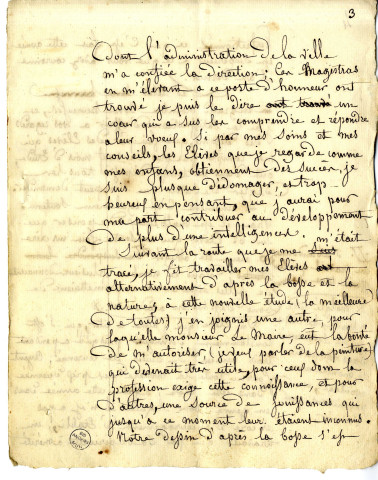 3
dont l'administration de la ville
m'a confiée la direction; Ces Magistras
en m'élevant a ce poste d'honneur ont
trouvé je puis le dire un
cœur qui a sus les comprendre et répondre
a leur voeuf. Si par mes soins et mes
conseils, les Elèves que je regarde comme
mes enfans, obtiennent des sucer, je
suis plusque dédomager, et trop
heureux en pensant, que j'aurai pour
ma part contribuer au développement
de plus d'une intelligence.
Suivant la route que je me m'était
tracé, je fit travailler mes Elèves
alternativement d'après la bosse et la
nature, à cette nouvelle étude (la meilleure
de toutes) j'en joignis une autre pour
laquelle monsieur Le Maire, eut la bonté
de m'autoriser, (je veux parler de la peinture)
qui dévenait tres utile, pour ceux dont la
profession exige cette connoissance, et pour
d'autres, une source de jouissances qui
jusqu'a ce moment leur étaient inconnus.
Notre dessin d'après la bosse s'est